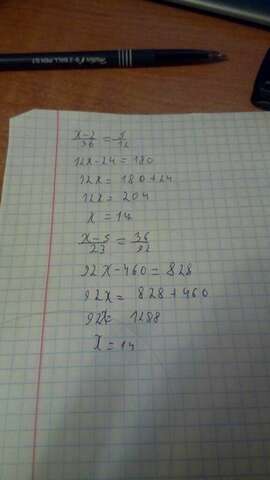 x-2/36 = 5/12
12x-24=180
12x = 180+24
12x = 204
x = 17
x-5/23 = 36/92
92x-460=828
92x= 828+460
92x= 1288
x=14